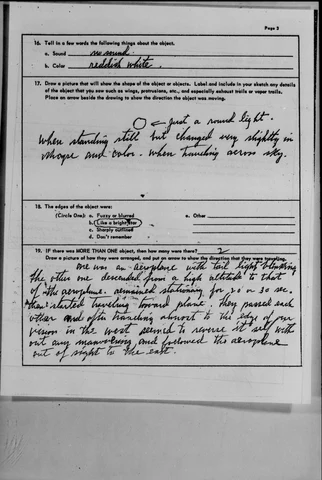 Page 2
16. Tell in a few words the following things about the object.
a. Sound no sound
b. Color reddish white.
17. Draw a picture that will show the shape of the object or objects. Label and include in your sketch any details
of the object that you saw such as wings, protrusions, etc., and especially exhaust trails or vapor trails.
Place an arrow beside the drawing to show the direction the object was moving.
Just a round light.
When standing still but changed very slightly in
shape and color. When traveling across sky.
18. The edges of the object were:
(Circle One): a. Fuzzy or blurred e. Other
b. Like a bright star
c. Sharply outlined
d. Don't remember
19. IF there was MORE THAN ONE object, then how many were there? 2
Draw a picture of how they were arranged, and put an arrow to show the direction they were traveling.
One was an aeroplane with tail light blinking
the other one descended from a high altitude to that
of the aeroplane. remained stationary for 20 or 30 sec.
then started traveling toward plane, they passed each
other and after traveling almost to the edge of our
vision in the west seemed to reverse it self with
out any manuvering, and followed the aeroplane
out of sight to the east.